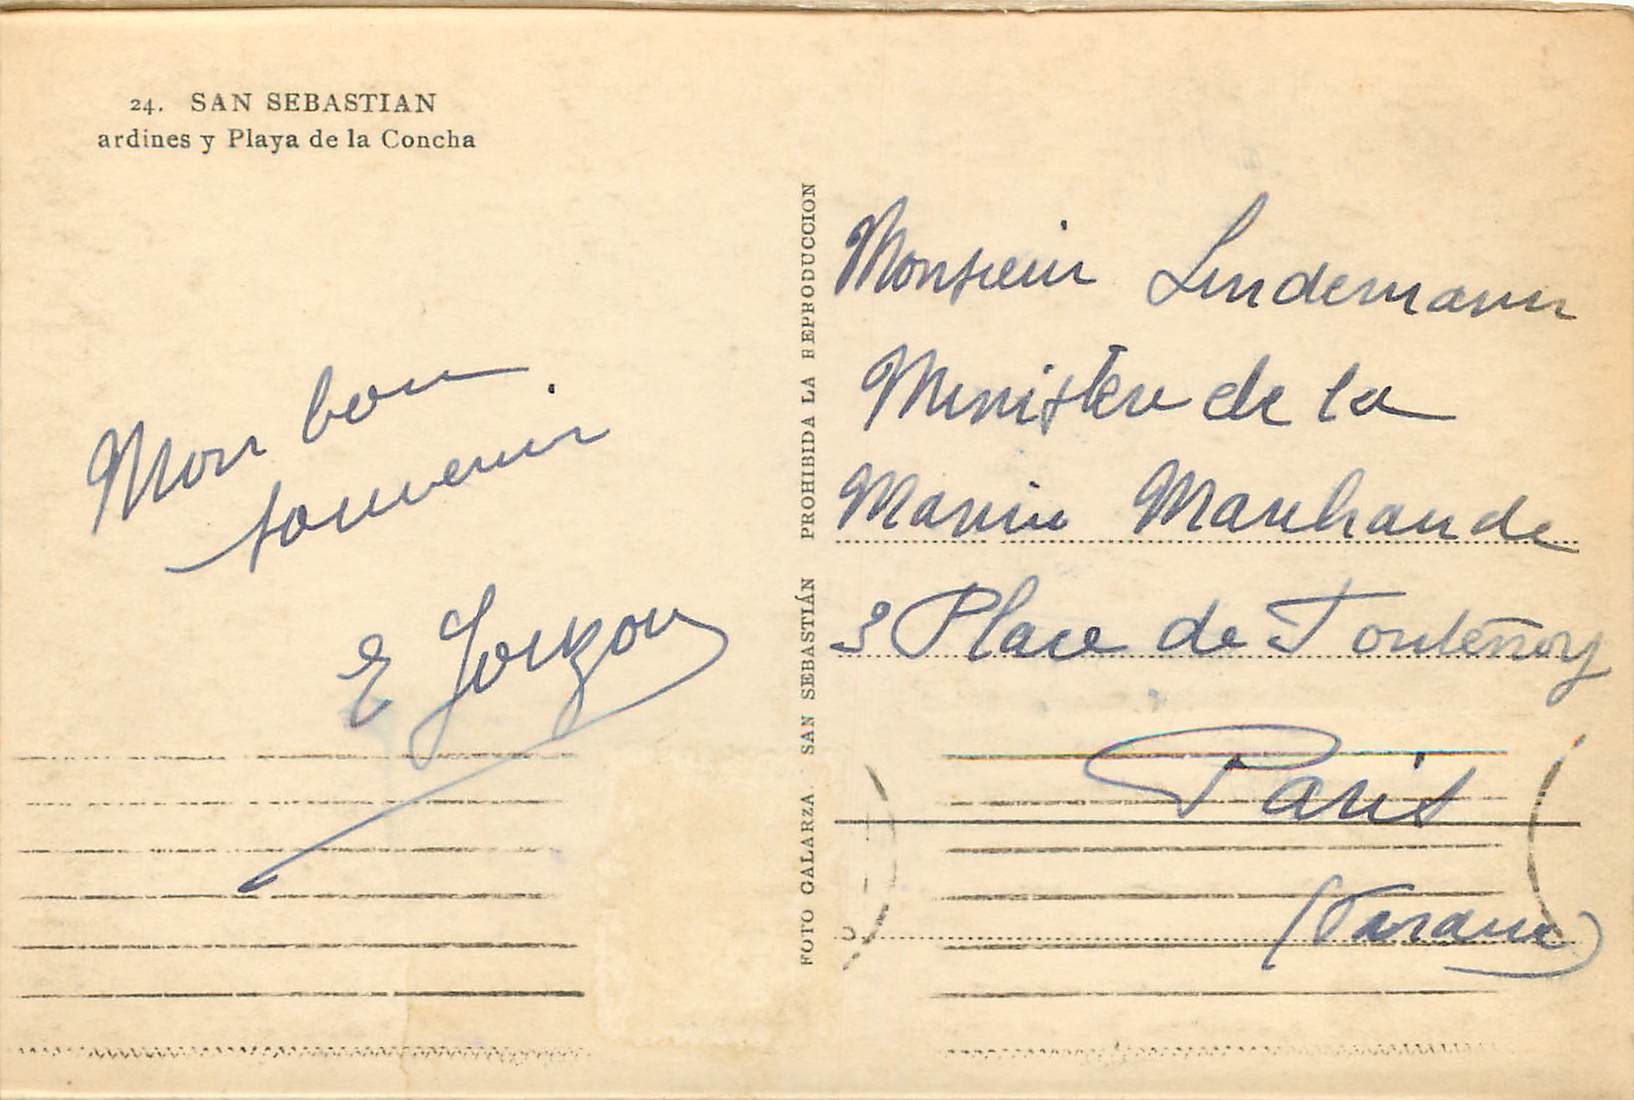 24. SAN SEBASTIAN
ardines y Playa de la Concha
Mon bon
souvenir
E
FOTO GALARZA. SAN SEBASTIÁN PROHIBIDA LA REPRODUCCION
Monsieur Lindemann
Ministère de la
Marine Marchande
3 Place de Fontenoy
Paris